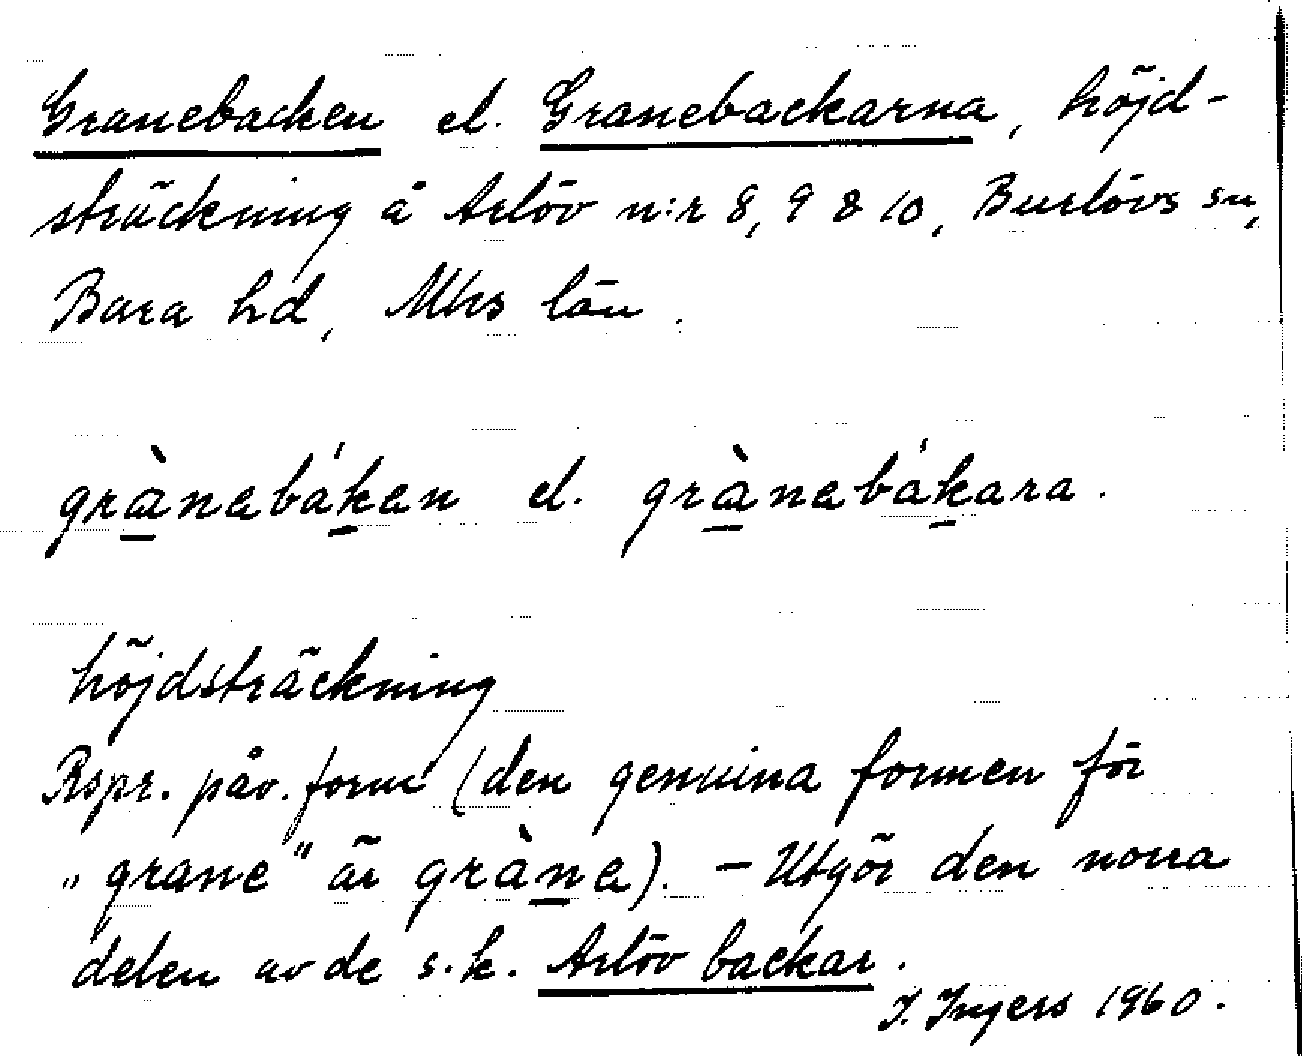 Granebacken el. Granebackarna, höjd-
sträckning å Arlöv n:r 8, 9 & 10, Burlövs sn,
Bara hd, Mhs län.
grànebáken el. grànebákara.
höjdsträckning
Rspr. påv. form (den genuina formen för
„grane" är gràne). - Utgör den norra
delen av de s.k. Arlöv backar.
I. Ingers 1960.